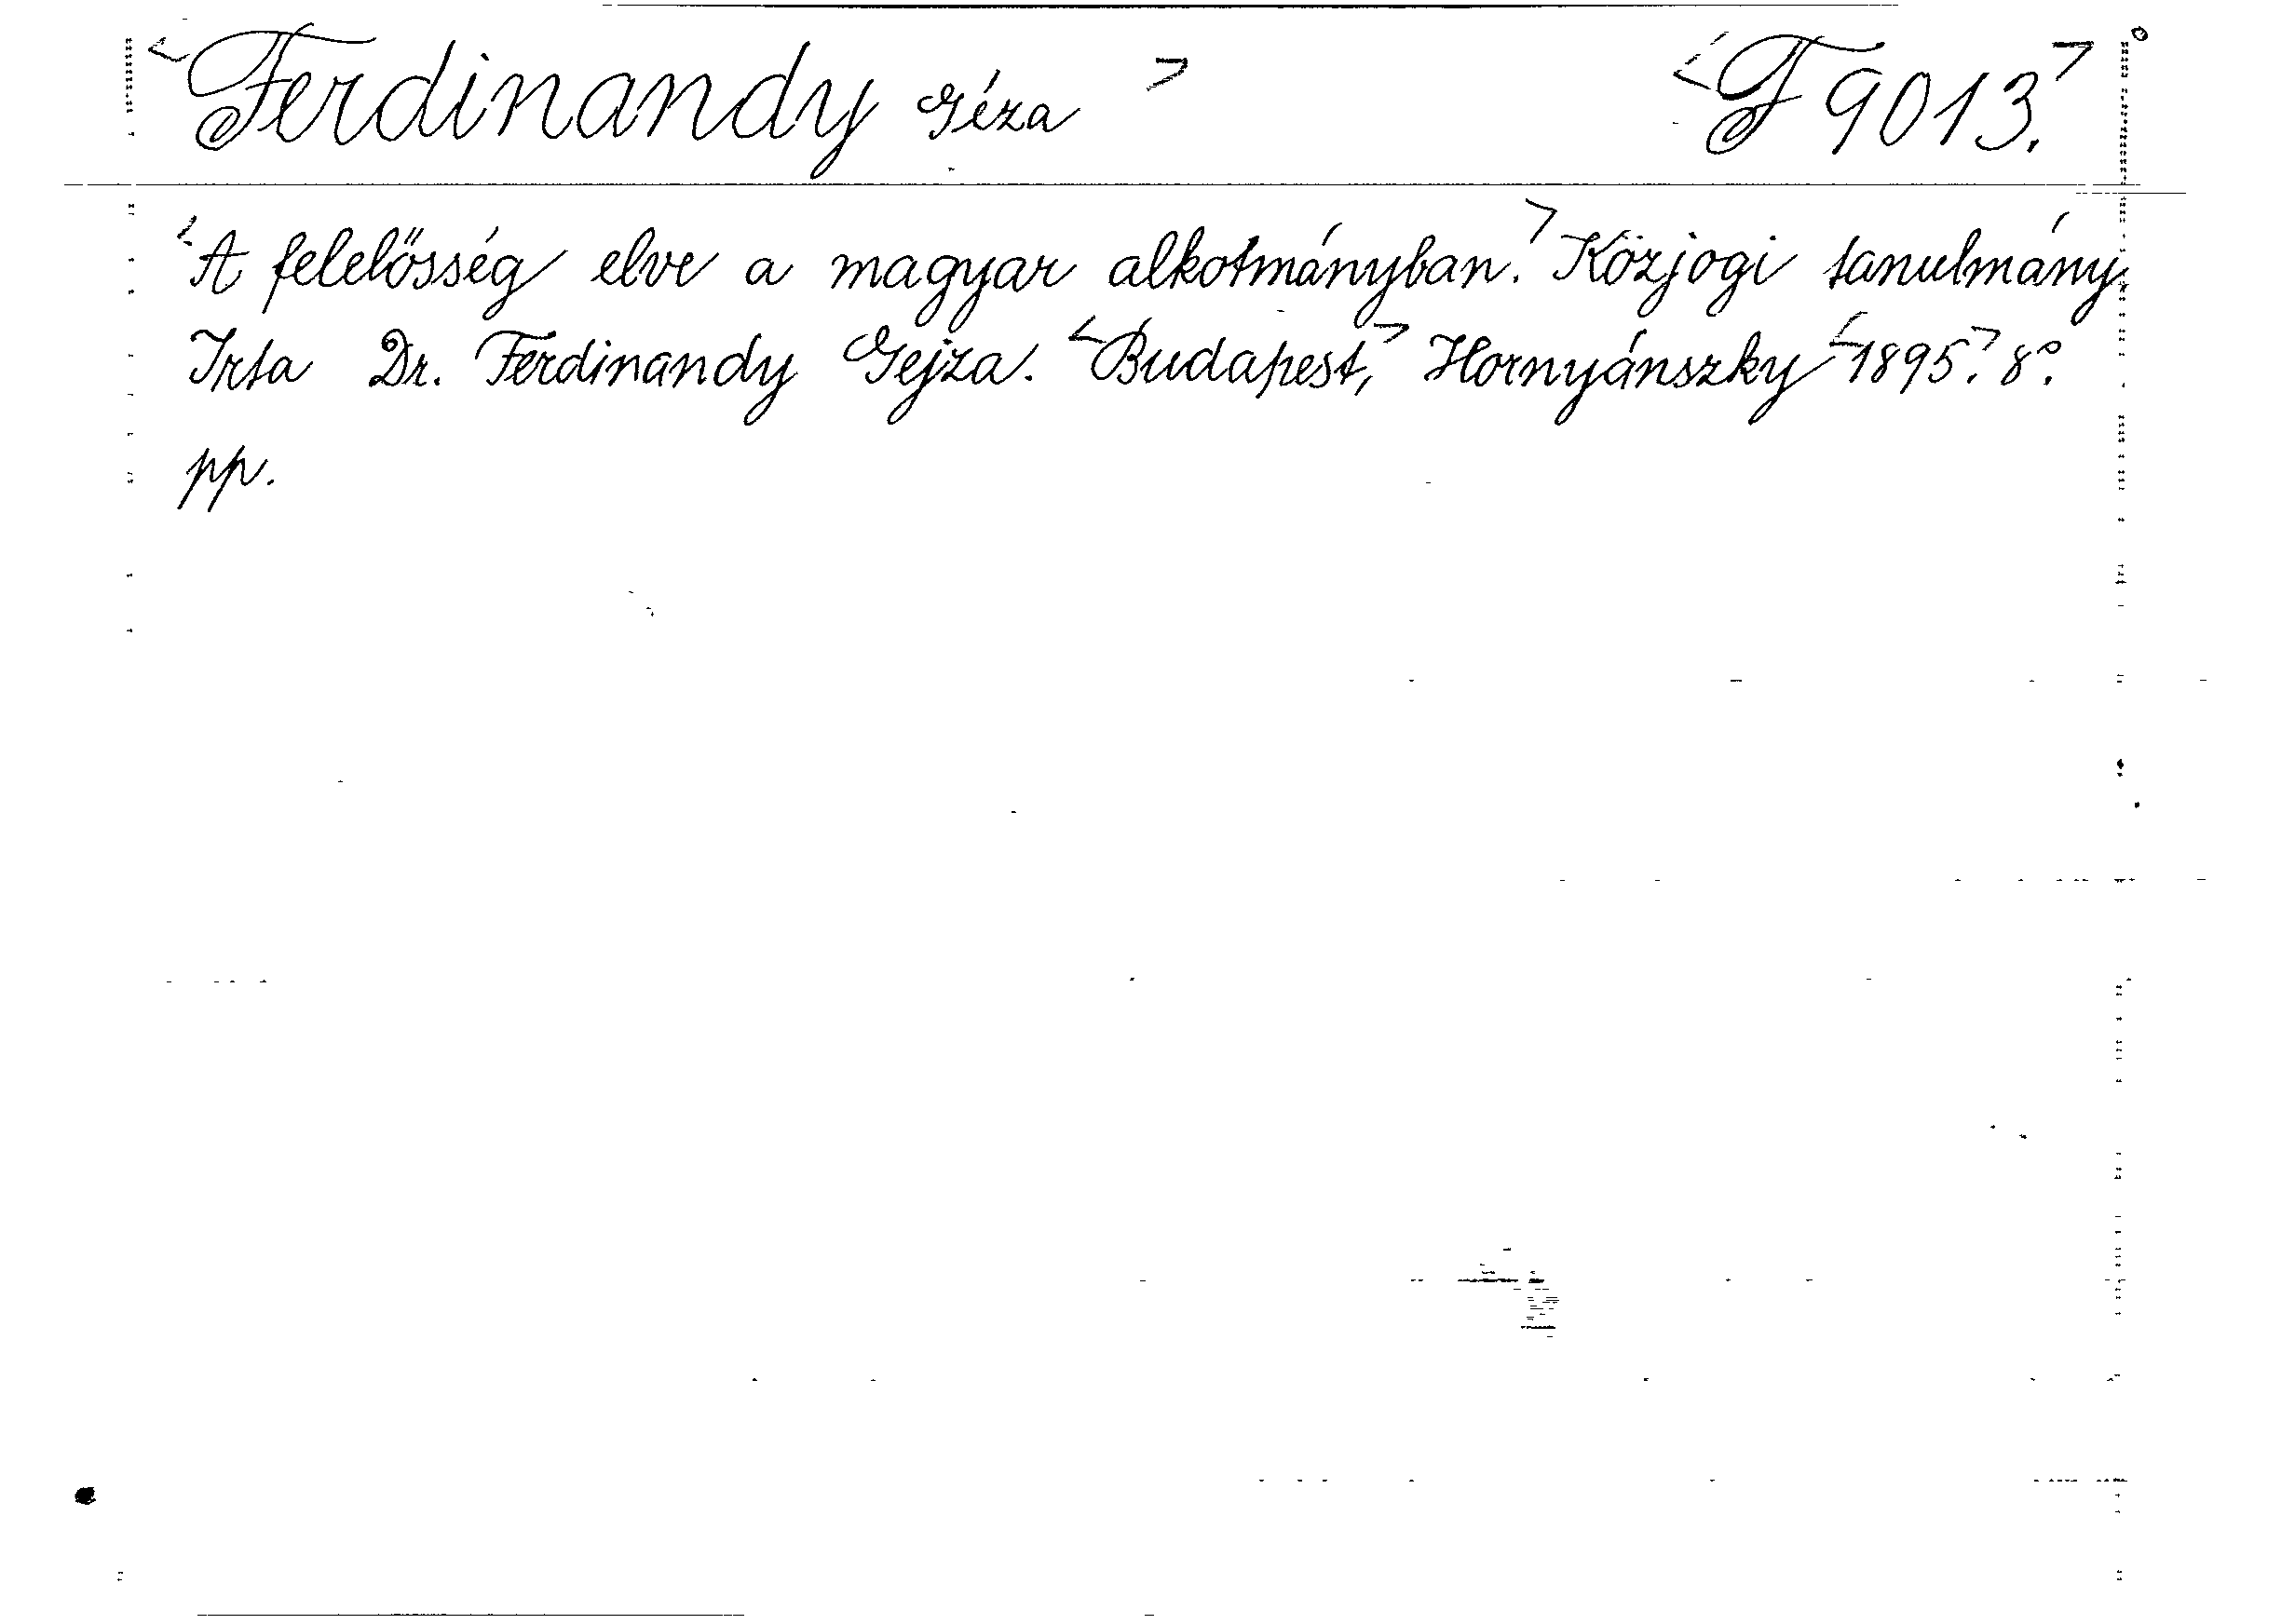 <Ferdinandy Géza> <F 9013.>
<A felelősség elve a magyar alkotmányban.> Közjogi tanulmány.
Irta Dr. Ferdinandy Gejza. <Budapest,> Hornyánszky <1895.> 8°.
pp.